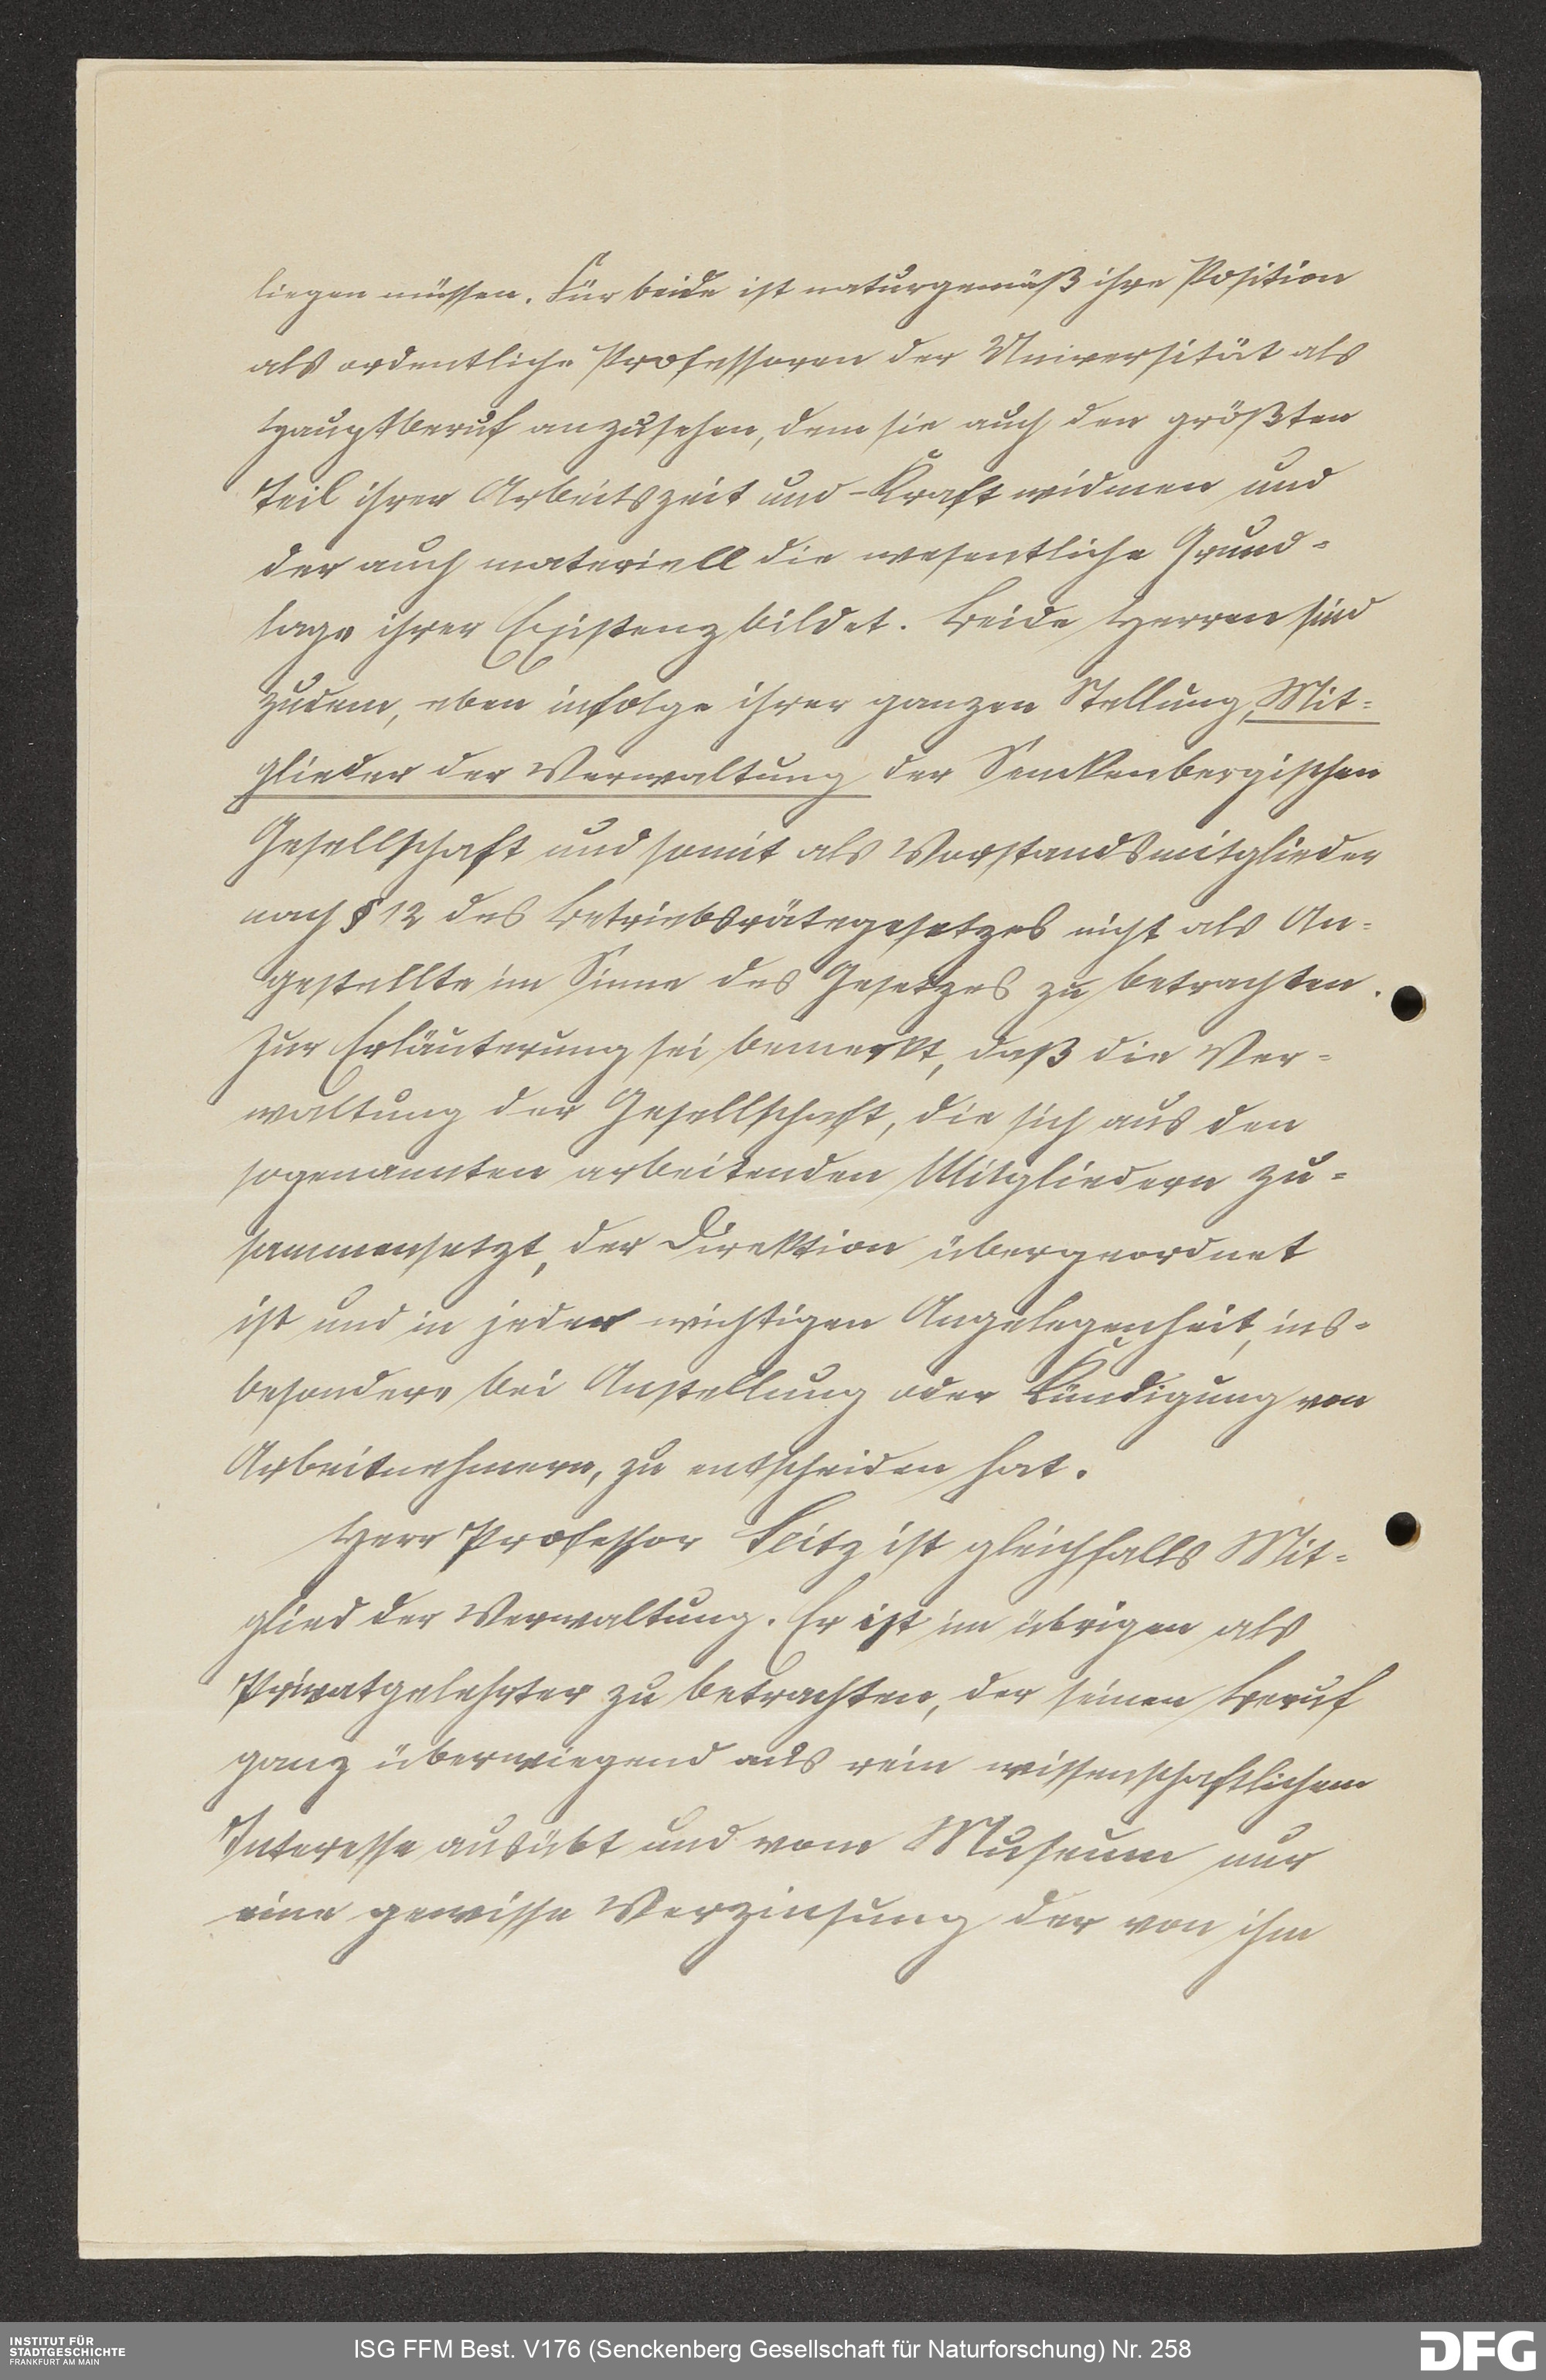 liegen müssen. Für beide ist naturgemäß ihre Position
als ordentliche Professoren der Universität als
Hauptberuf anzusehen, dem sie auch den größten
Teil ihrer Arbeitszeit und -Kraft widmen und
der auch materiell die wesentliche Grund-
lage ihrer Existenz bildet. Beide Herren sind
zudem, eben infolge ihrer ganzen Stellung, Mit-
glieder der Verwaltung der Senckenbergischen
Gesellschaft und somit als Vorstandsmitglieder
nach § 12 des Betriebsrätegesetzes nicht als An-
gestellte im Sinne des Gesetzes zu betrachten.
Zur Erläuterung sei bemerkt, daß die Ver-
waltung der Gesellschaft, die sich aus den
sogenannten arbeitenden Mitgliedern zu-
sammensetzt, der Direktion übergeordnet
ist und in jeder wichtigen Angelegenheit, ins-
besondere bei Anstellung oder Kündigung von
Arbeitnehmern, zu entscheiden hat.
Herr Professor Seitz ist gleichfalls Mit-
glied der Verwaltung. Er ist im übrigen als
Privatgelehrter zu betrachten, der seinen Beruf
ganz überwiegend aus rein wissenschaftlichem
Interesse ausübt und vom Museum nur
eine gewisse Verzinsung der von ihm
INSTITUT FÜR
STADTGESCHICHTE
FRANKFURT AM MAIN
ISG FFM Best. V176 (Senckenberg Gesellschaft für Naturforschung) Nr. 258
DFG